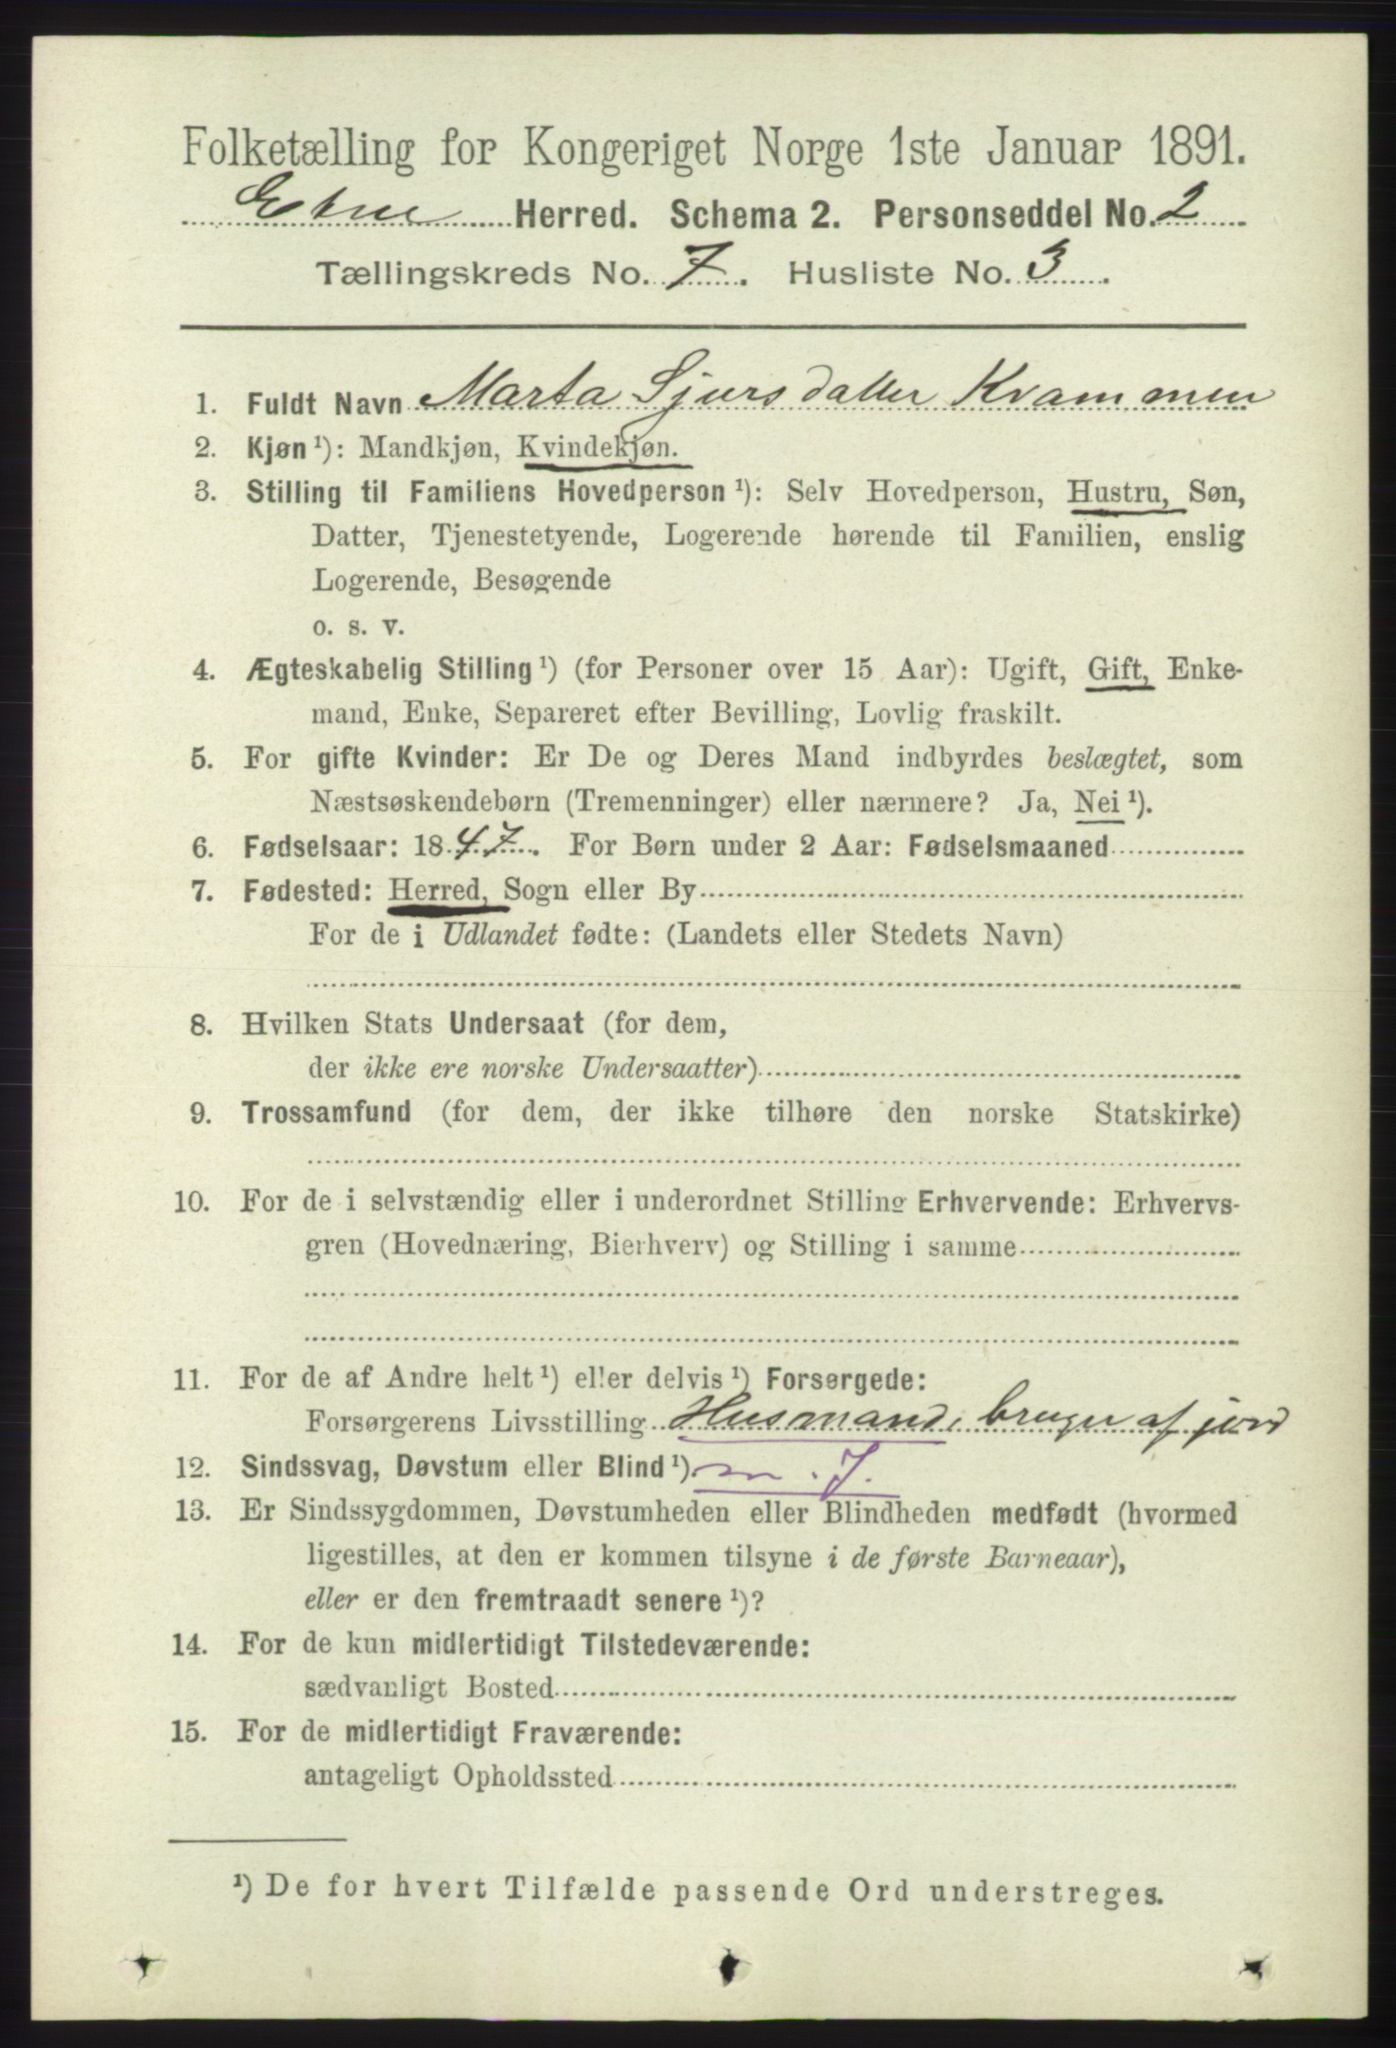 Folketælling for Kongeriget Norge 1ste Januar 1891.
Etne Herred. Schema 2. Personseddel No. 2
Tællingskreds No. 7. Husliste No. 3.
1. Fuldt Navn Marta Sjursdatter Kvammen
2. Kjøn ¹): Mandkjøn, Kvindekjøn.
3. Stilling til Familiens Hovedperson ¹): Selv Hovedperson, Hustru, Søn,
Datter, Tjenestetyende, Logerende hørende til Familien, enslig
Logerende, Besøgende
o. s. v.
4. Ægteskabelig Stilling ¹) (for Personer over 15 Aar): Ugift, Gift, Enke-
mand, Enke, Separeret efter Bevilling, Lovlig fraskilt.
5. For gifte Kvinder: Er De og Deres Mand indbyrdes beslægtet, som
Næstsøskendebørn (Tremenninger) eller nærmere? Ja, Nei ¹).
6. Fødselsaar: 1847. For Børn under 2 Aar: Fødselsmaaned
7. Fødested: Herred, Sogn eller By
For de i Udlandet fødte: (Landets eller Stedets Navn)
8. Hvilken Stats Undersaat (for dem,
der ikke ere norske Undersaatter)
9. Trossamfund (for dem, der ikke tilhøre den norske Statskirke)
10. For de i selvstændig eller i underordnet Stilling Erhvervende: Erhvervs-
gren (Hovednæring, Bierhverv) og Stilling i samme
11. For de af Andre helt ¹) eller delvis ¹) Forsørgede:
Forsørgerens Livsstilling Husmand, bruger af jord
12. Sindssvag, Døvstum eller Blind ¹). m. J.
13. Er Sindssygdommen, Døvstumheden eller Blindheden medfødt (hvormed
ligestilles, at den er kommen tilsyne i de første Barneaar),
eller er den fremtraadt senere ¹)?
14. For de kun midlertidigt Tilstedeværende:
sædvanligt Bosted
15. For de midlertidigt Fraværende:
antageligt Opholdssted
¹) De for hvert Tilfælde passende Ord understreges.